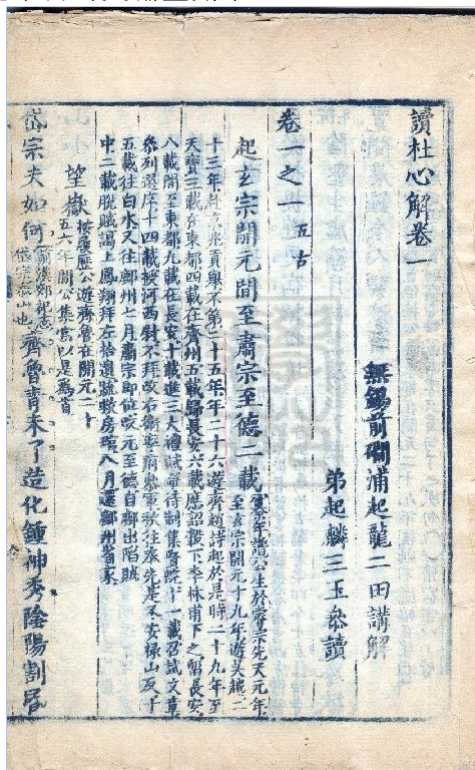 讀杜心解卷一
無錫前磵浦起龍二田講解
弟起麟三玉參讀
卷一之一 五古
起玄宗開元間至肅宗至德二載
舊年譜公生於睿宗先天元年
至玄宗開元十九年遊吳越二
十三年赴京兆貢舉不第二十五年年二十六遊齊趙詩起於是時二十九年至
天寶三載在東都四載在齊州五載歸長安六載應詔按下李林甫下之留長安
八載間至東都九載在長安十載進三大禮試帝待制集賢院十一載召試文章
參列選序十四載授河西尉不拜改右衛率府胄曹軍秋往奉先是冬安祿山反十
五載往白水又往鄜州七月肅宗即位改元至德自鄜出陷賊
中二載脫賊謁上鳳翔拜左拾遺疏救房琯八月還鄜州省家
望嶽
按履歷公遊齊魯在開元二十
五六年間公集當以是為首
岱宗夫如何
齊魯青未了造化鍾神秀陰陽割昏